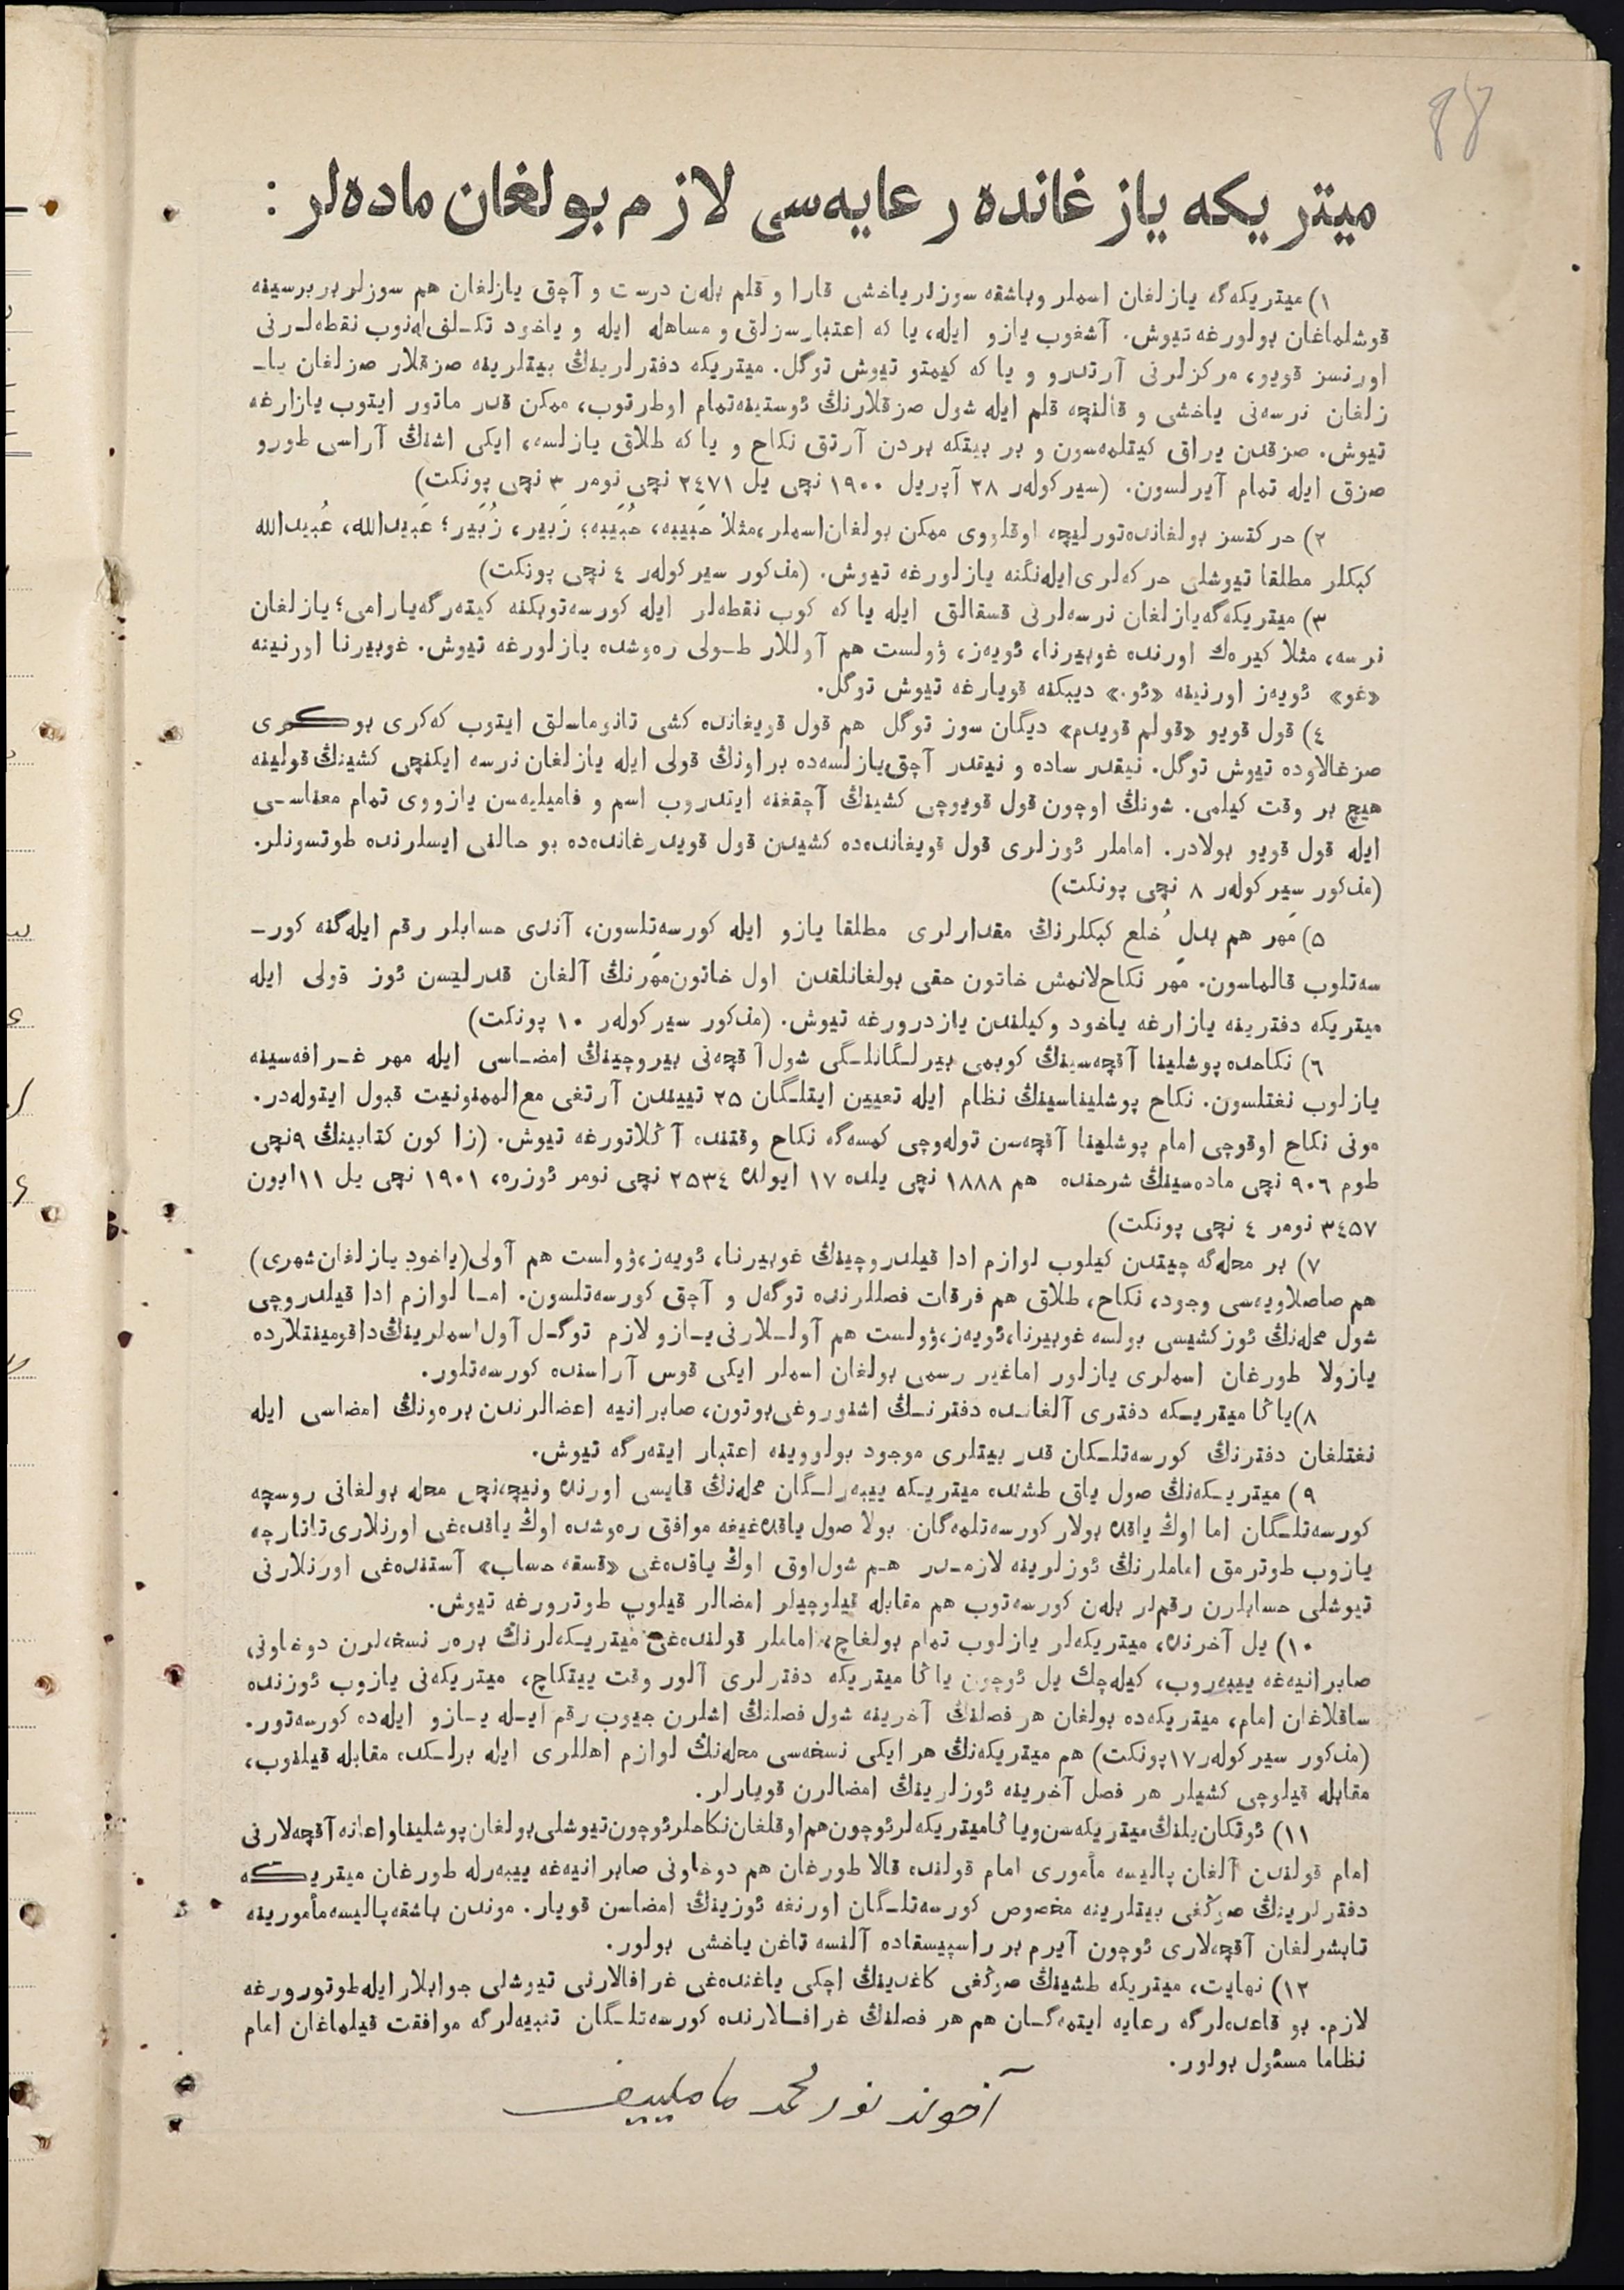 ۸۷
میتریکه یازغانده رعایه‌سی لازم بولغان ماده‌لر :
۱) میتریکه‌گه یازلغان اسملر وباشقه سوزلر یاخشی قارا و قلم بله‌ن درست و آچق یازلغان هم سوزلر بربرسینه
قوشلماغان بولورغه تیوش. آشغوب یازو ایله، یا که اعتبارسزلق و مساهله ایله و یاخود تکـلف‌له‌نوب نقطه‌لـرنی
اورنسز قویو، مرکزلرنی آرتدرو و یا که کیمتو تیوش توگل. میتریکه دفترلرینڭ بیتلرینه صزقلار صزلغان یاـ
زلغان نرسه‌نی یاخشی و قالنچه قلم ایله شول صزقلارنڭ ئوستینه‌تمام اوطرتوب، ممکن قدر ماتور ایتوب یازارغه
تیوش. صزقدن یراق کیتلمه‌سون و بر بیتکه بردن آرتق نکاح و یا که طلاق یازلسه، ایکی اشنڭ آراسی طورو
صزق ایله تمام آیرلسون. (سیرکوله‌ر ۲۸ آپریل ۱۹۰۰ نچی یل ۲٤۷۱ نچی نومر ۳ نچی پونکت)
۲) حرکتسز بولغانده‌تورلیچه اوقلووی ممکن بولغان‌اسملر،مثلا حَبیبه، حُبَیبه؛ زَبیر، زُبَیر؛ عَبیدالله، عُبیدالله
کبکلر مطلقا تیوشلی حرکه‌لری‌ایله‌نگنه یازلورغه تیوش. (مذکور سیرکوله‌ر ٤ نچی پونکت)
۳) میتریکه‌گه‌یازلغان نرسه‌لرنی قسقالق ایله یا که کوب نقطه‌لر ایله کورسه‌توبکنه کیته‌رگه‌یارامی؛ یازلغان
نرسه، مثلا کیره‌ك اورنده غوبیرنا، ئویه‌ز، ۋولست هم آوللار طـولی ره‌وشده یازلورغه تیوش. غوبیرنا اورنینه
«غو» ئویه‌ز اورنینه «ئو.» دیبکنه قویارغه تیوش توگل.
٤) قول قویو «قولم قویدم» دیگان سوز توگل هم قول قویغانده کشی تانوماسلق ایتوب که‌کری بوکری
صزغالاوده تیوش توگل. نیقدر ساده و نیقدر آچق‌یازلسه‌ده براونڭ قولی ایله یازلغان نرسه ایکنچی کشینڭ قولینه
هیچ بر وقت کیلمی. شونڭ اوچون قول قویوچی کشینڭ آچقغنه ایتدروب اسم و فامیلیه‌سن یازووی تمام معناسـی
ایله قول قویو بولادر. اماملر ئوزلری قول قویغانده‌ده کشیدن قول قویدرغانده‌ده بو حالنی ایسلرنده طوتسونلر.
(مذکور سیرکوله‌ر ۸ نچی پونکت)
۵) مَهر هم بدلِ خُلع کبکلرنڭ مقدارلری مطلقا یازو ایله کورسه‌تلسون، آندی حسابلر رقم ایله‌گنه کورـ
سه‌تلوب قالماسون. مَهر نکاح‌لانمش خاتون حقی بولغانلقدن اول خاتون‌مهرنڭ آلغان قدرلیسن ئوز قولی ایله
میتریکه دفترینه یازارغه یاخود وکیلندن یازدرورغه تیوش. (مذکور سیرکوله‌ر ۱۰ پونکت)
٦) نکاحده پوشلینا آقچه‌سینڭ کوبمی بیرلـگانلـگی شول‌آقچه‌نی بیروچینڭ امضـاسی ایله مهر غـرافه‌سینه
یازلوب نغتلسون. نکاح پوشلیناسینڭ نظام ایله تعیین ایتلـگان ۲۵ تییندن آرتغی مع‌الممنونیت قبول ایتوله‌در.
مونی نکاح اوقوچی امام پوشلینا آقچه‌سن توله‌وچی کمسه‌گه نکاح وقتنده آڭلاتورغه تیوش. (زاکون کتابینڭ ۹نچی
طوم ۹۰٦ نچی ماده‌سینڭ شرحنده هم ۱۸۸۸ نچی یلده ۱۷ ایولده ۲۵۳٤ نچی نومر ئوزره، ۱۹۰۱ نچی یل ۱۱ایون
۳٤۵۷ نومر ٤ نچی پونکت)
۷) بر محله‌گه چیتدن کیلوب لوازم ادا قیلدروچینڭ غوبیرنا، ئویه‌ز،ۋولست هم آولی(یاخود یازلغان‌شهری)
هم صاصلاویه‌سی وجود، نکاح، طلاق هم فرقات فصللرنده توگه‌ل و آچق کورسه‌تلسون. امـا لوازم ادا قیلدروچی
شول محله‌نڭ ئوزکشیسی بولسه غوبیرنا،ئویه‌ز،ۋولست هم آولـلارنی‌یـازو لازم توگـل آول‌اسملرینڭ‌داقومینتلارده
یازولا طورغان اسملری یازلور اماغیر رسمی بولغان اسملر ایکی قوس آراسنده کورسه‌تلور.
۸)یاڭا میتریـکه دفتری آلغانـده دفترنـڭ اشنوروغی‌بوتون، صابرانیه اعضالرندن بره‌ونڭ امضاسی ایله
نغتلغان دفترنڭ کورسه‌تلـکان قدر بیتلری موجود بولووینه اعتبار ایته‌رگه تیوش.
۹) میتریـکه‌نڭ صول یاق طشنده میتریـکه ییبه‌رلـگان محله‌نڭ قایسی اورنده ونیچه‌نچی محله بولغانی روسچه
کورسه‌تلـگان اما اوڭ یاقده بولار کورسه‌تلمه‌گان. بولا صول یاقده‌غیغه موافق ره‌وشده اوڭ یاقده‌غی اورنلاری‌تاتارچه
یازوب طوترمق اماملرنڭ ئوزلرینه لازمـدر هـم شول‌اوق اوڭ یاقده‌غی «قسقه حساب» آستنده‌غی اورنلارنی
تیوشلی حسابلرن رقم‌لر بله‌ن کورسه‌توب هم مقابله قیلوچیلر امضالر قیلوب طوترورغه تیوش.
۱۰) یل آخرنده، میتریکه‌لر یازلوب تمام بولغاچ، اماملر قولنده‌غی میتریـکه‌لرنڭ بره‌ر نسخه‌لرن دوخاونی
صابرانیه‌غه ییبه‌روب، کیله‌چك یل ئوچون یاڭا میتریکه دفترلری آلور وقت ییتکاچ، میتریکه‌نی یازوب ئوزنده
ساقلاغان امام، میتریکه‌ده بولغان هر فصلنڭ آخرینه شول فصلنڭ اشلرن جیوب رقم ایـله یـازو ایله‌ده کورسه‌تور.
(مذکور سیرکوله‌ر ۱۷پونکت) هم میتریکه‌نڭ هر ایکی نسخه‌سی محله‌نڭ لوازم اهللری ایله برلـکده مقابله قیلنوب،
مقابله قیلوچی کشیلر هر فصل آخرینه ئوزلرینڭ امضالرن قویارلر.
۱۱) ئوتکان‌یلنڭ میتریکه‌سن ویاڭامیتریکه‌لرئوچون‌هم‌اوقلغان‌نکاحلرئوچون‌تیوشلی‌بولغان‌پوشلیناواعانه‌آقچه‌لارنی
امام قولندن آلغان پالیسه مأموری امام قولنده قالا طورغان هم دوخاونی صابرانیه‌غه ییبه‌رله طورغان میتریکه
دفترلرینڭ صوڭغی بیتلرینه مخصوص کورسه‌تلـگان اورنغه ئوزینڭ امضاسن قویار. موندن باشقه‌پالیسه‌مأمورینه
تابشرلغان آقچه‌لاری ئوچون آیرم بر راسپیسقاده آلنسه تاغن یاخشی بولور.
۱۲) نهایت، میتریکه طشینڭ صوڭغی کاغدینڭ اچکی یاغنده‌غی غرافالارنی تیوشلی جوابلارایله‌طوتورورغه
لازم. بو قاعده‌لرگه رعایه ایتمه‌گـان هم هر فصلنڭ غرافـالارنده کورسه‌تلـگان تنبیه‌لرگه موافقت قیلماغان امام
نظاما مسئول بولور.
آخوند نورمحمد مامليیف